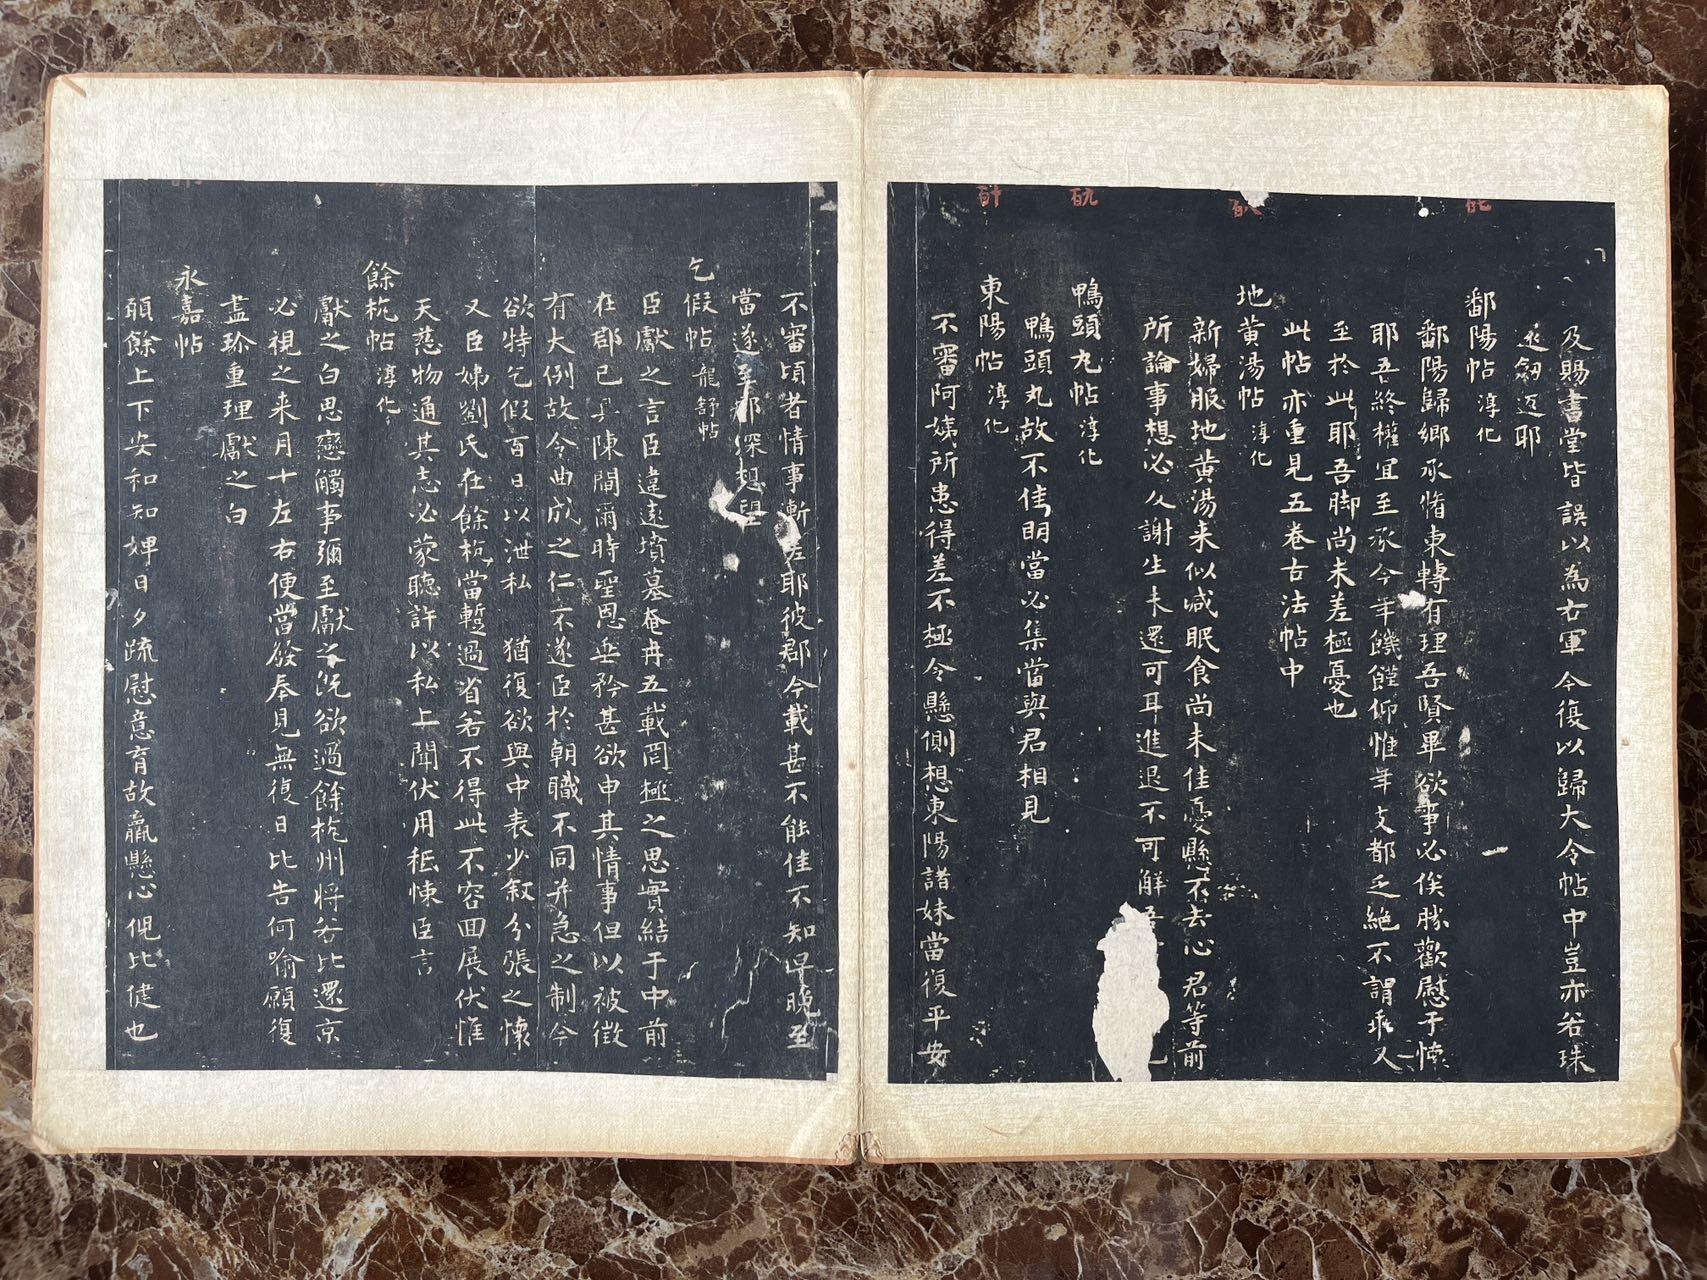 及賜書堂皆誤以為右軍今復以歸大令帖中豈亦若珠
還劔返耶
鄱陽帖 淳化
鄱陽歸鄉承脩東轉有理吾賢畢欲事必俟勝歡慰于懷
耶吾終權宜至承今年饑饉仰惟年支都乏絕不謂乖又
至於此耶吾脚尚未差極憂也
此帖亦重見五卷古法帖中
地黄湯帖 淳化
新婦服地黄湯来似減眠食尚未佳憂懸不去心君等前
所論事想必及謝生未還可耳進退不可解
鴨頭丸帖 淳化
鴨頭丸故不佳明當必集當與君相見
東陽帖 淳化
不審阿姨所患得差不極令懸惻想東陽諸妹當復平安
不審頃者情事漸差耶彼郡今載甚不能佳不知早晚至
當遂至郡深想望
乞假帖 龍舒帖
臣獻之言臣違遠墳墓奄冉五載罔極之思實結于中前
在郡已具陳聞爾時聖恩垂矜甚欲申其情事但以被徴
有大例故令曲成之仁不遂臣於朝職不同并急之制今
欲特乞假百日以泄私 猶復欲與中表少叙分張之懷
又臣姊劉氏在餘杭當暫過省若不得此不容囬展伏惟
天慈物通其志必蒙聽許以私上聞伏用秪悚臣言
餘杭帖 淳化
獻之白思戀觸事彌至獻之既欲過餘杭州将若比還京
必視之来月十左右便當發奉見無復日比告何喻願復
盡珍重理獻之白
永嘉帖
頤餘上下安和知婢日夕疏慰意育故羸懸心倪比健也